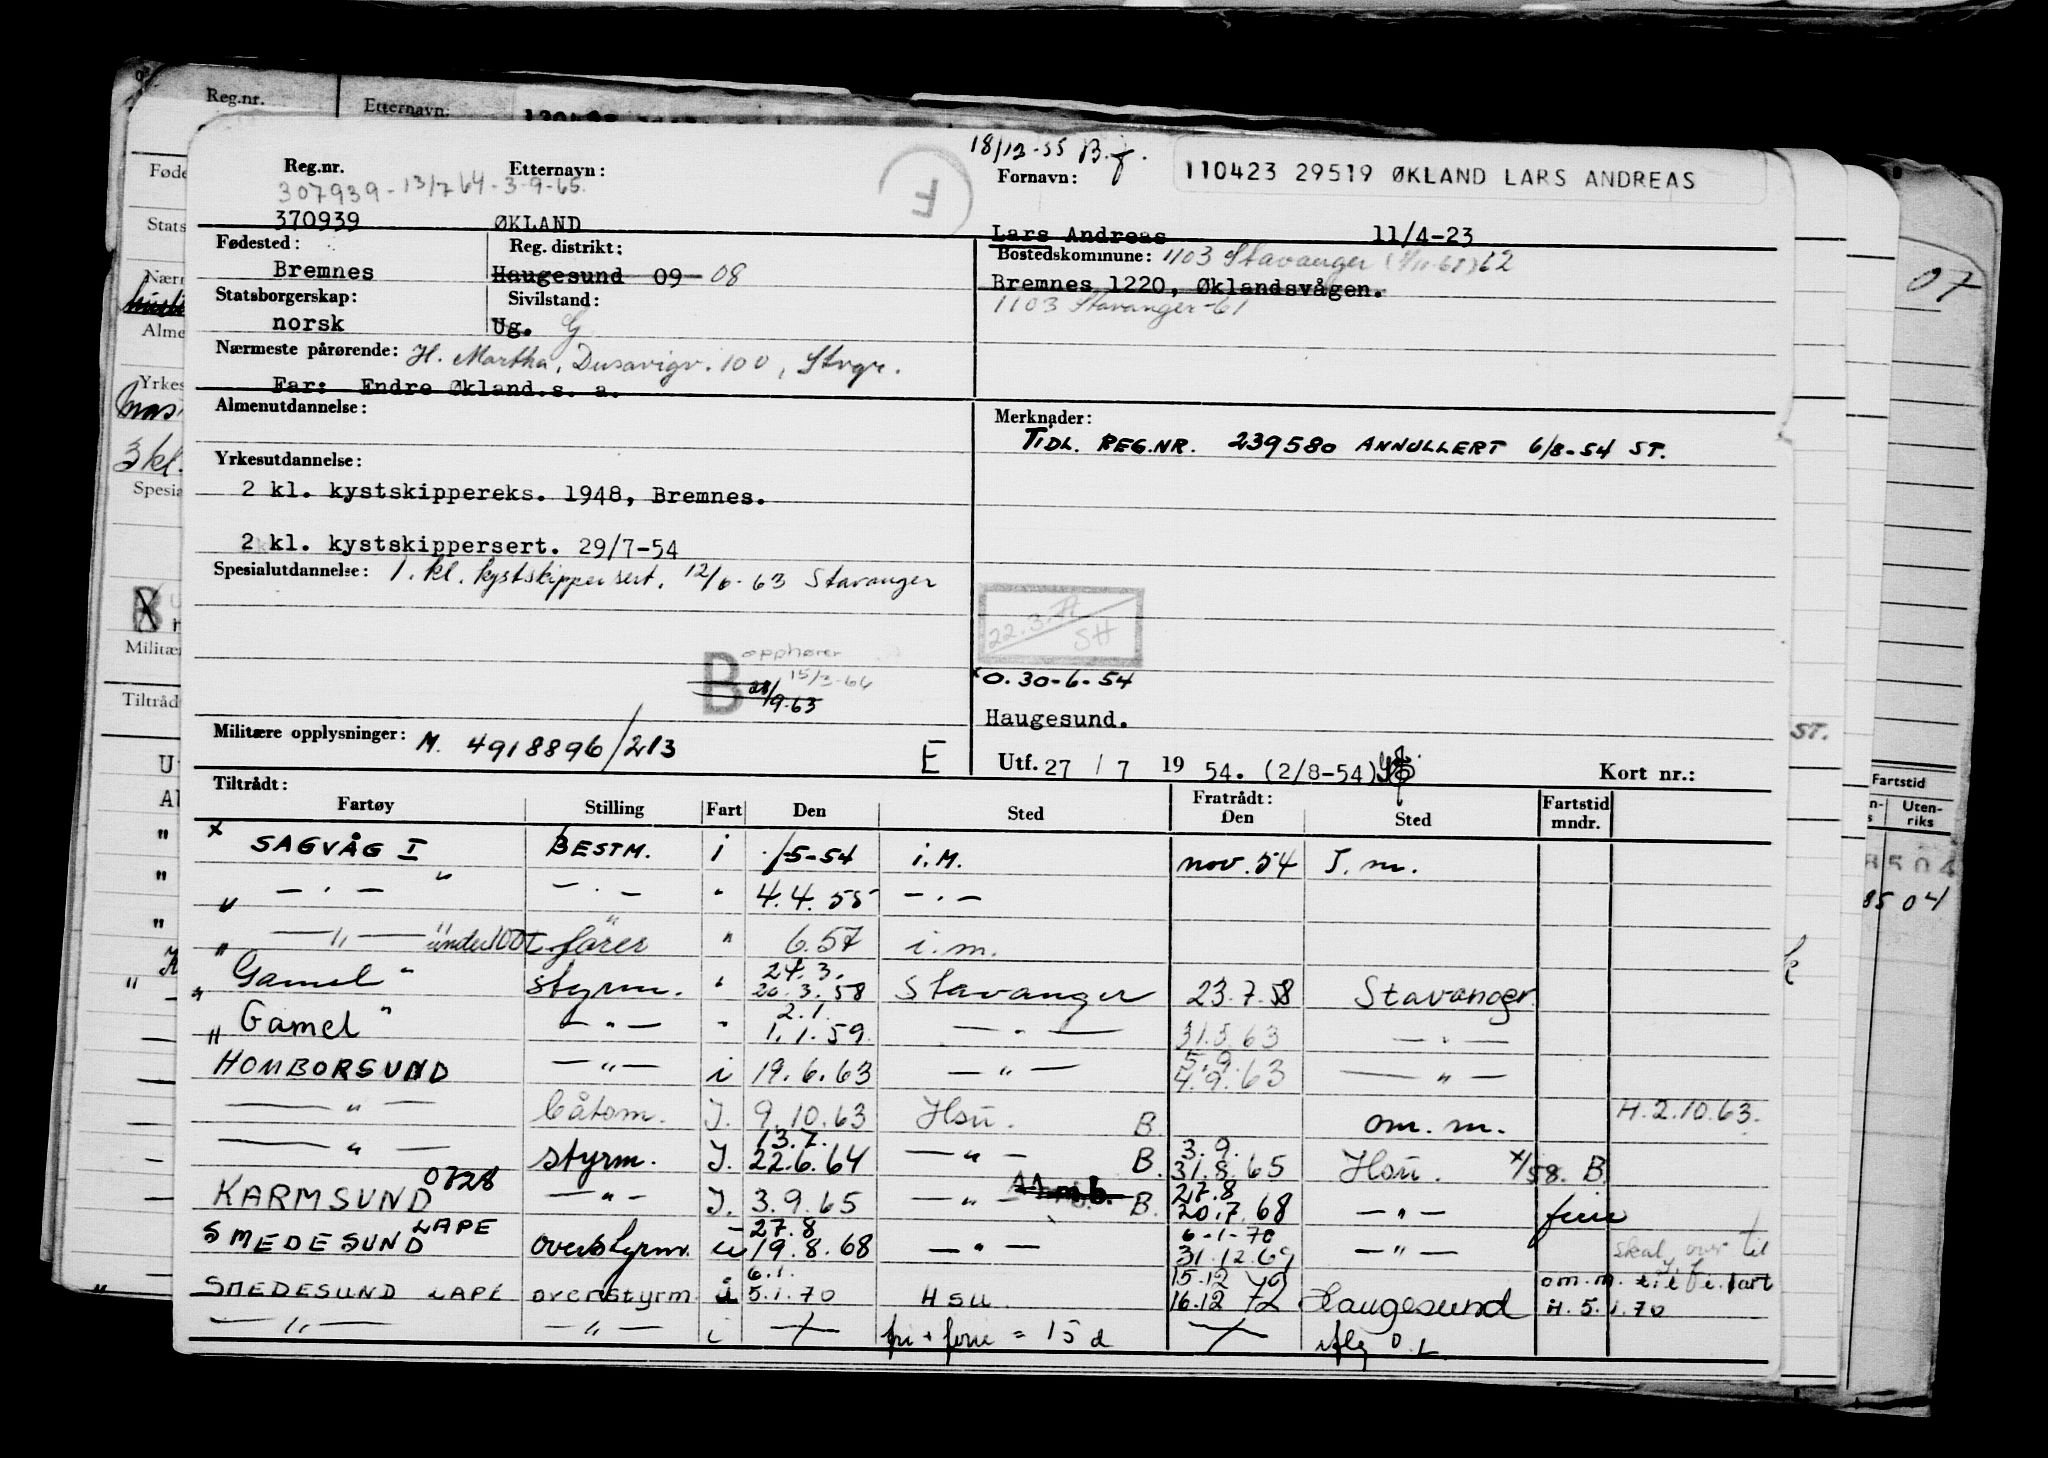 Reg.nr. Etternavn:
18/12-55 B.f.
Reg.nr. Etternavn: Fornavn: 110423 29519 ØKLAND LARS ANDREAS
307939-13/7 64-3-9-65.
F
370939 ØKLAND Lars Andreas 11/4-23
Fødested: Reg. distrikt: Bostedskommune: 1103 Stavanger 62
Bremnes Haugesund 09-08 Bremnes 1220, Øklandsvågen.
Statsborgerskap: Sivilstand: 1103 Stavanger-61
norsk Ug. G
Nærmeste pårørende: H. Martha, Dusavigv. 100, Stvgr.
Far: Endre Økland.s. a.
Almenutdannelse: Merknader:
TIDL. REG.NR. 239580 ANNULLERT 6/8-54 ST.
Yrkesutdannelse:
2 kl. kystskippereks. 1948, Bremnes.
2 kl. kystskippersert. 29/7-54
Spesialutdannelse: 1. kl. kystskippersert. 12/6-63 Stavanger
22.3. SH
B opphører 15/3-66
28/9-63
*O. 30-6-54
Haugesund.
Militære opplysninger: M. 4918896/213 E Utf. 27 / 7 19 54. (2/8-54) Kort nr.:
Tiltrådt: Fratrådt:
Fartøy Stilling Fart Den Sted Den Sted Fartstid mndr.
x SAGVÅG I BESTM. i /5-54 i.M. nov. 54 I. m.
" — . — " — . — " 4.4.55 — . —
" — " — under 100 T. fører " 6.57 i.m.
24.3.
" Gamel " styrm. " 26.3.58 Stavanger 23.7.58 Stavanger
2.1.
" Gamel " — " — " 1.1.59. — " — 31.5.63 — " —
5.9.
HOMBORSUND — " — i 19.6.63 — " — 4.9.63 — " —
— " — båtsm. I. 9.10.63 Hsu. B. om. m. H.2.10.63.
13.7. 3.9.
— " — styrm. I. 22.6.64 — " — B. 31.8.65 Hsu. x/58. B
0728 27.8
KARMSUND — " — I. 3.9.65 — " — B. 20.7.68 — " — ferie
LAPE 27.8 6-1-70
SMEDESUND overstyrm. u 19.8.68 — " — 31.12.69 — " — skal over til
6.1. 15.12 72 om.m. til i. fart
SMEDESUND LAPE overstyrm. 5.1.70 HSU 16.12 72 Haugesund H. 5.1.70
— " — — " — i fri + ferie = 15 d
Føde
Stats
Nærm
Alme
Yrkes
3 kl.
Spesia
Militær
Tiltråd
07
ST.
Fartstid
Uten-
riks
8504
8504